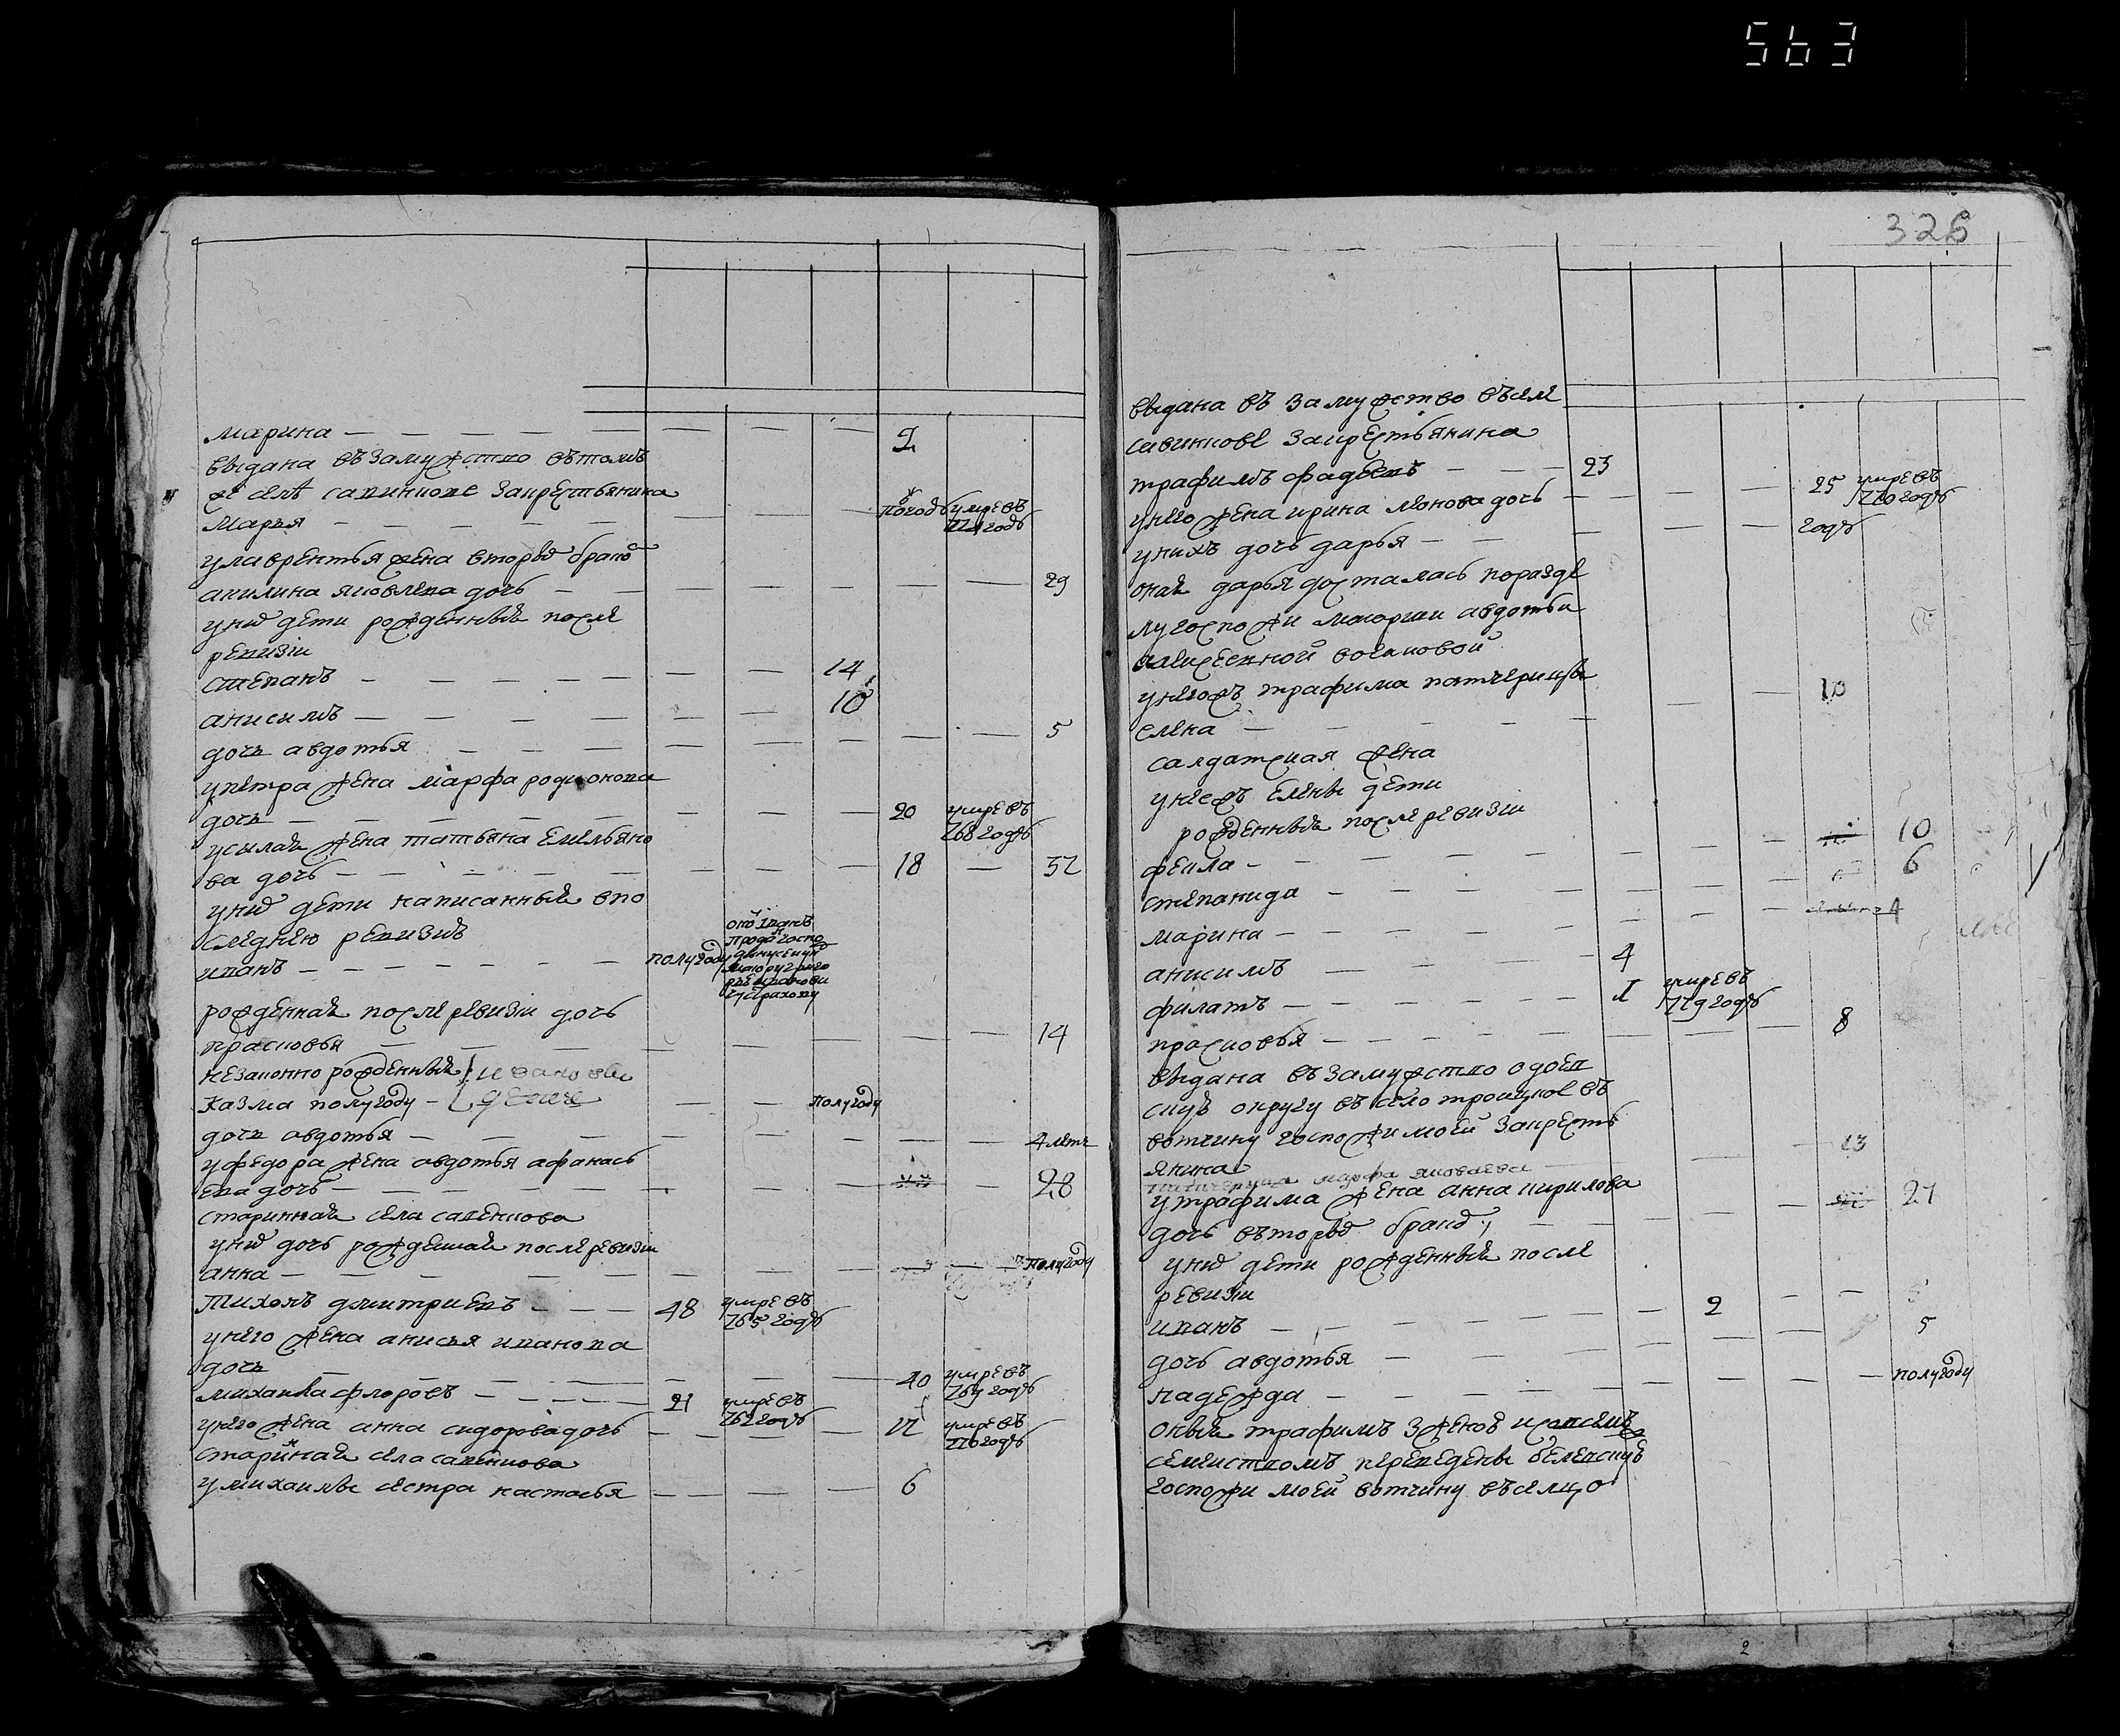 563
марина — 2
выдана въ замужство въ томъ
же селѣ савинкове за крестьянина
марья — погодъ умре въ 771 годѣ
у лаврентья жена вторым браком
акилина яковлева дочь — 29
у них дети рожденныя после
ревизии
степанъ — 14
анисимъ — 10
дочь авдотья — 5
у петра жена марфа родионова
дочь — 20 умре въ 768 годѣ
жена татьяна емельяно
ва дочь — 18 — 32
у них дети написанныя в по
следнею ревизию
иванъ — полугоду
рожденная после ревизии дочь
прасковья — 14
незаконно рожденныя
казма полугоду — полугоду
дочь авдотья — 4 летъ
у федора жена авдотья афанась
ева дочь — 28
старинная села
у них дочь рожденная после ревизии
анна — полугоду
тихонъ дмитриевъ — 48 умре въ 765 годѣ
у него жена анисья иванова
дочь — 40 умре въ 769 годѣ
михаила флоровъ — 21 умре въ 762 годѣ
у него жена анна сидорова дочь — 22 умре въ 770 годѣ
старинная села
у михаилы сестра настасья — 6
326
выдана въ замужство въ селе
савинкове за крестьянина
трафимъ фадеевъ — 23
у него жена ирина леонова дочь — 25 умре въ 770 годѣ
у нихъ дочь дарья — годѣ
оная дарья досталась по разде
лу госпожи маиорши авдотьи
алексеевной
у негожъ трафима патчерица
елена — 10
салдатская жена
у неежъ елены дети
рожденныя после ревизии
фекла — 10
степанида — 6
марина — 4
анисимъ — 4
филатъ — 1 умре въ 779 годѣ
прасковья — 8
выдана въ замужство одоев
скую округу въ село троицкое въ
вотчину госпожи моей за кресть
янина
патчерица марфа яковлева — 13
у трафима жена анна кирилова
дочь вторым браком — 27
у них дети рожденныя после
ревизии
иванъ — 2
дочь авдотья — 5
надежда — полугоду
оный трафимъ з женою и со всемъ
семеиствомъ переведены белевскую
госпожи моей вотчину въ селцо
2